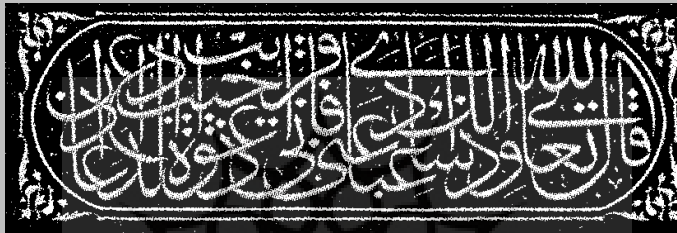 قال الله تعالى واذا سألك عبادي عني فاني قريب اجيب دعوة الداع اذا دعان